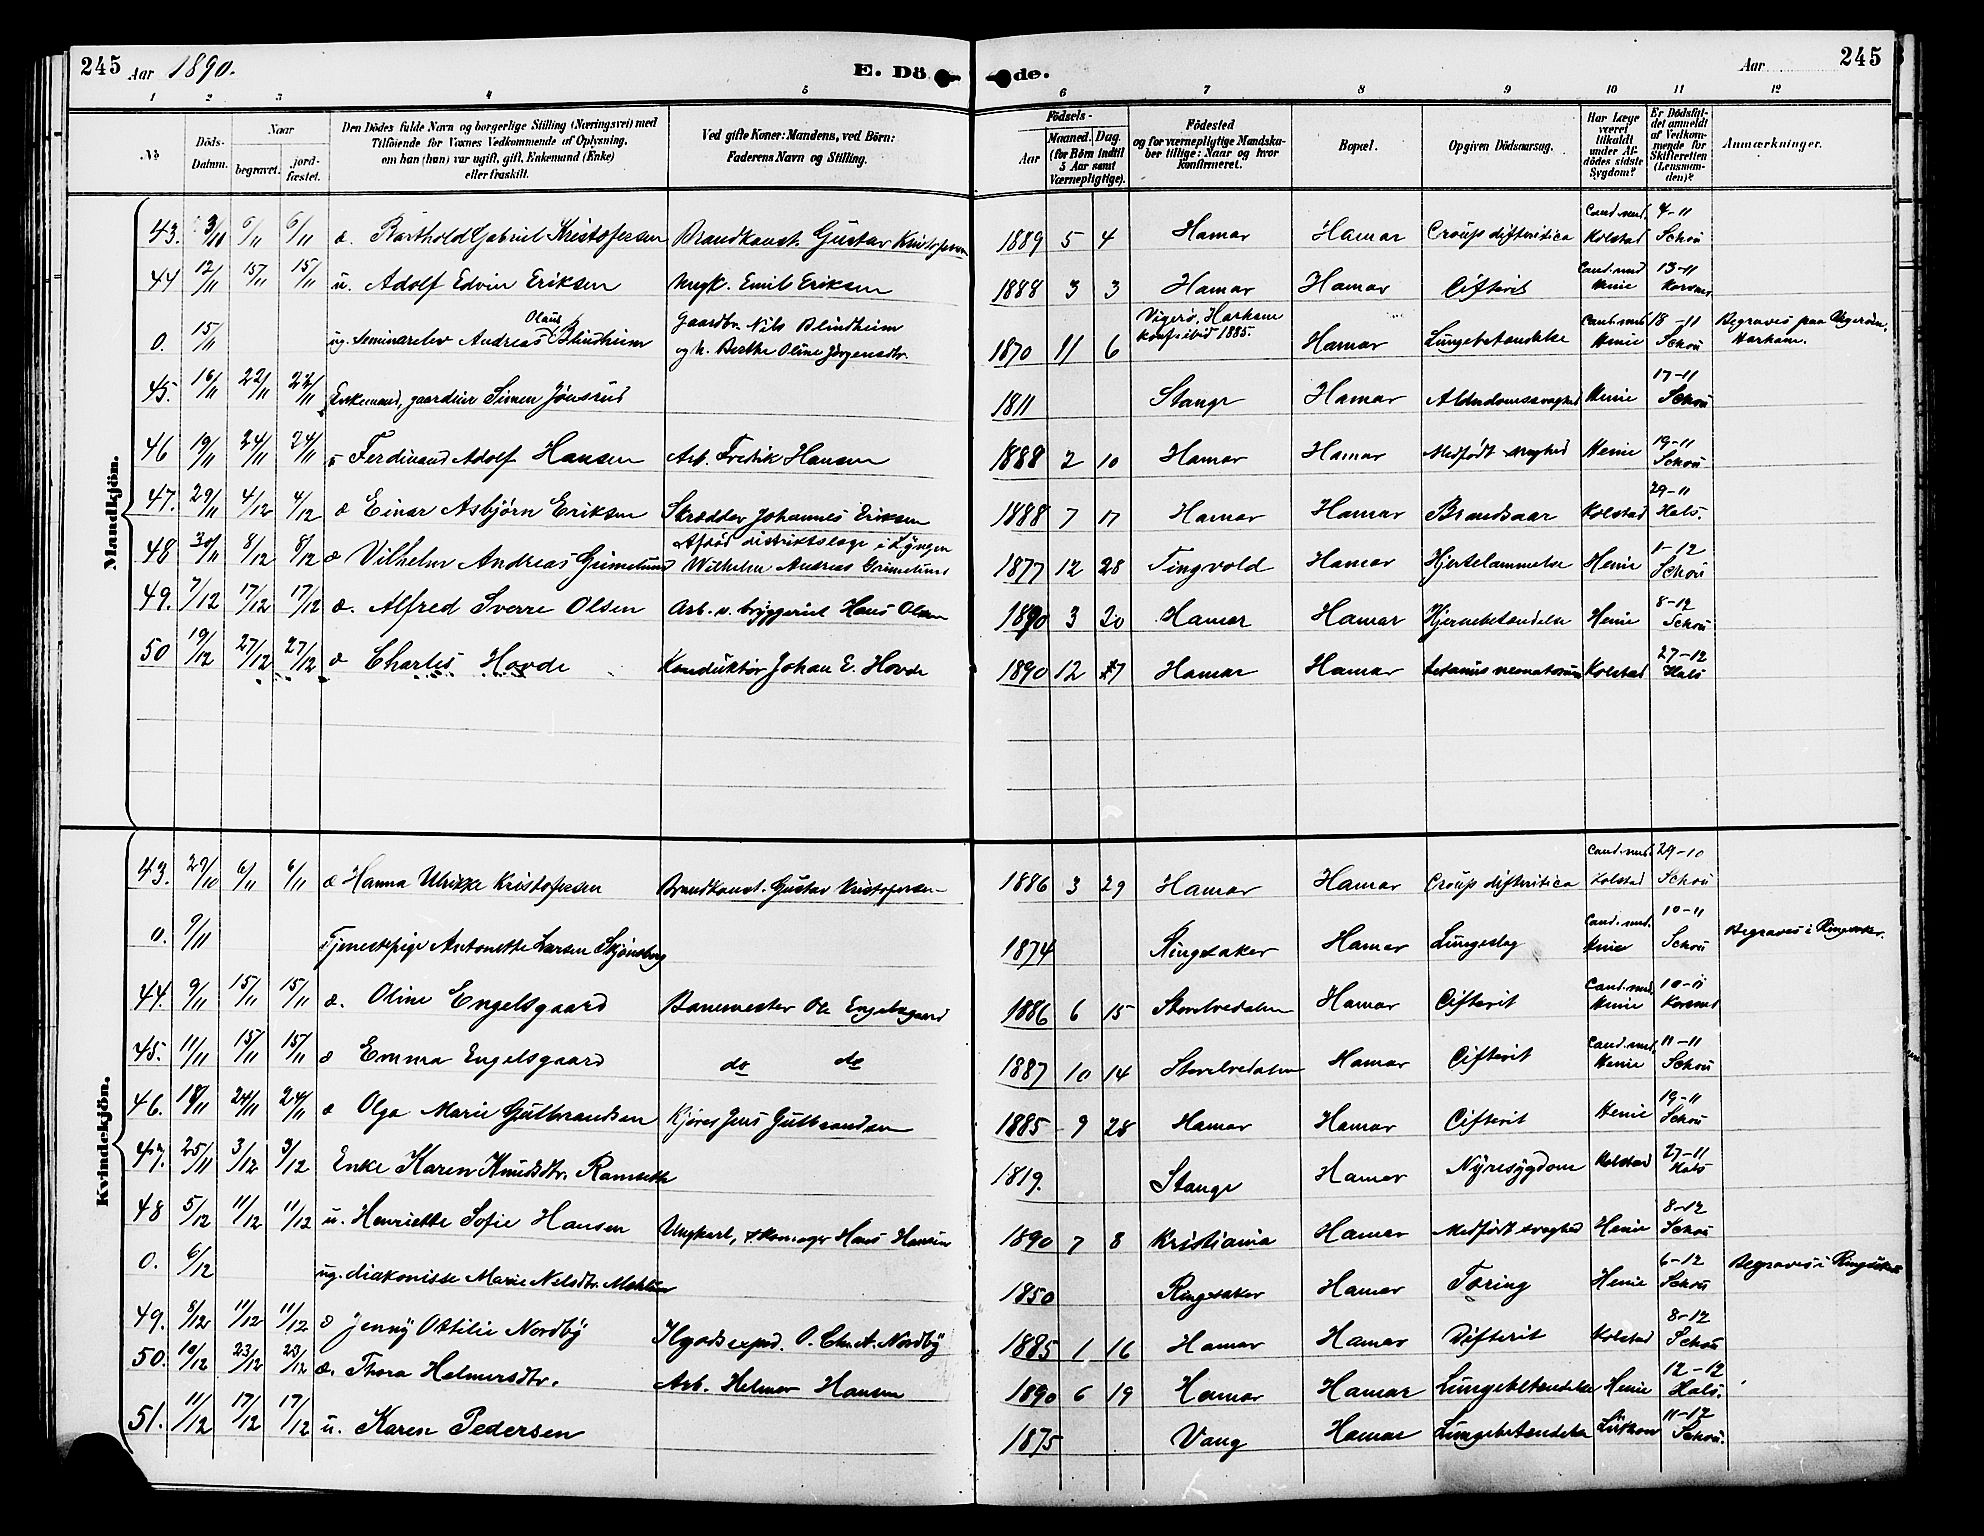 245 Aar 1890. E. Dö de. Aar 245
1 2 3 4 5 6 7 8 9 10 11 12
№ Döds-Datum. Naar begravet. jord-fæstet. Den Dödes fulde Navn og borgerlige Stilling (Næringsvei) med Tilföiende for Voxnes Vedkommende af Oplysning, om han (hun) var ugift, gift, Enkemand (Enke) eller fraskilt. Ved gifte Koner: Mandens, ved Börn: Faderens Navn og Stilling. Födsels- Aar Maaned. Dag. (for Börn indtil 5 Aar samt Værnepligtige). Födested og for værnepligtige Mandskaber tillige: Naar og hvor konfirmeret. Bopæl. Opgiven Dödsaarsag. Har Læge været tilkaldt under Afdödes sidste Sygdom? Er Dödsfaldet anmeldt af Vedkommende for Skifteretten (Lensmanden)? Anmærkninger.
Mandkjön.
43. 3/11 6/11 6/11 æ. Barthold Gabriel Kristofersen Brandkonst. Gustav Kristofersen 1889 5 4 Hamar Hamar Croup difteritica Cand. med. Kolstad 4-11 Schou
44 12/11 15/11 15/11 u. Adolf Edvin Eriksen Ungk. Emil Eriksen 1888 3 3 Hamar Hamar Difterit Cand. med Henie 13-11
0. 15/11 ug. Seminarelev Andreas Olaus Blindheim Gaardbr. Nils Blindheim og h. Berthe Oline Jørgensdtr. 1870 11 6 Vigerø, Harham 1885. Hamar Lungebetændelse Cand. med Henie 18-11 Schou Begraves paa Vigerøen, Harham.
45. 16/11 22/11 22/11 Enkemand, gaardeier Simen Jønsrud 1811 Stange Hamar Alderdomssvaghed Henie 17-11 Schou
46 19/11 24/11 24/11 Ferdinand Adolf Hansen Arb. Fredrik Hansen 1888 2 10 Hamar Hamar Medfødt svaghed Henie 19-11 Schou
47. 29/11 4/12 4/12 æ Einar Asbjørn Eriksen Skrædder Johannes Eriksen 1888 7 17 Hamar Hamar Brandsaar Kolstad 29-11 Hals.
48 30/11 8/12 8/12 æ Vilhelm Andreas Grimelund Afdød distriktslæge i Lyngen Wilhelm Andreas Grimelund 1877 12 28 Tingvold Hamar Hjertelammelse Henie 1-12 Schou
49. 7/12 17/12 17/12 æ. Alfred Sverre Olsen Arb. v. bryggeriet Hans Olsen 1890 3 20 Hamar Hamar Hjernebetændelse Henie 8-12 Schou
50 19/12 27/12 27/12 æ Charles Hovde Konduktør Johan E. Hovde 1890 12 7 Hamar Hamar tetanus neonatorum Kolstad 27-12 Hals
Kvindekjön.
43. 29/10 6/11 6/11 æ Hanna Ulrikke Kristofersen Brandkonst. Gustav Kristofersen 1886 3 29 Hamar Hamar Croup difteritica Cand. med. Kolstad 29-10 Schou
0. 9/11 Tjenestepige Antonette Larsen Skjønsberg 1874 Ringsaker Hamar Lungeslag Cand. med. Henie 10-11 Schou Begraves i Ringsaker.
44. 9/11 15/11 15/11 æ. Oline Engelsgaard Banemester Ole Engelsgaard 1886 6 15 Storelvedalen Hamar Difterit Cand. med. Henie 10-11
45. 11/11 15/11 15/11 æ Emma Engelsgaard do do 1887 10 14 Storelvedalen Hamar Difterit Cand. med. Henie 11-11 Schou
46. 18/11 24/11 24/11 æ Olga Marie Gulbrandsen Kjører Jens Gulbrandsen 1885 9 28 Hamar Hamar Difterit Henie 19-11 Schou
47. 25/11 3/12 3/12 Enke Karen Knudsdtr. Ramseth 1819. Stange Hamar Nyresygdom Kolstad 27-11 Hals
48 5/12 11/12 11/12 u. Henriette Sofie Hansen Ungkarl, skomager Hans Hansen 1890 7 8 Kristiania Hamar Medfødt svaghed Henie 8-12 Schou
0. 6/12 ug. diakonisse Marie Nelsdtr. Mohlun 1850 Ringsaker Hamar Tæring Henie 6-12 Schou Begraves i Ringsaker
49. 8/12 11/12 11/12 æ Jenny Ottilie Nordby Ilgodsexped. O. Chr. A. Nordby 1885 1 16 Hamar Hamar Difterit Kolstad 8-12 Schou
50. 10/12 23/12 23/12 æ. Thora Helmersdtr. Arb. Helmer Hansen 1890 6 19 Hamar Hamar Lungebetændelse Henie 12-12 Hals.
51. 11/12 17/12 17/12 u. Karen Pedersen 1875 Vang Hamar Lungebetændelse Lützow 11-12 Schou.